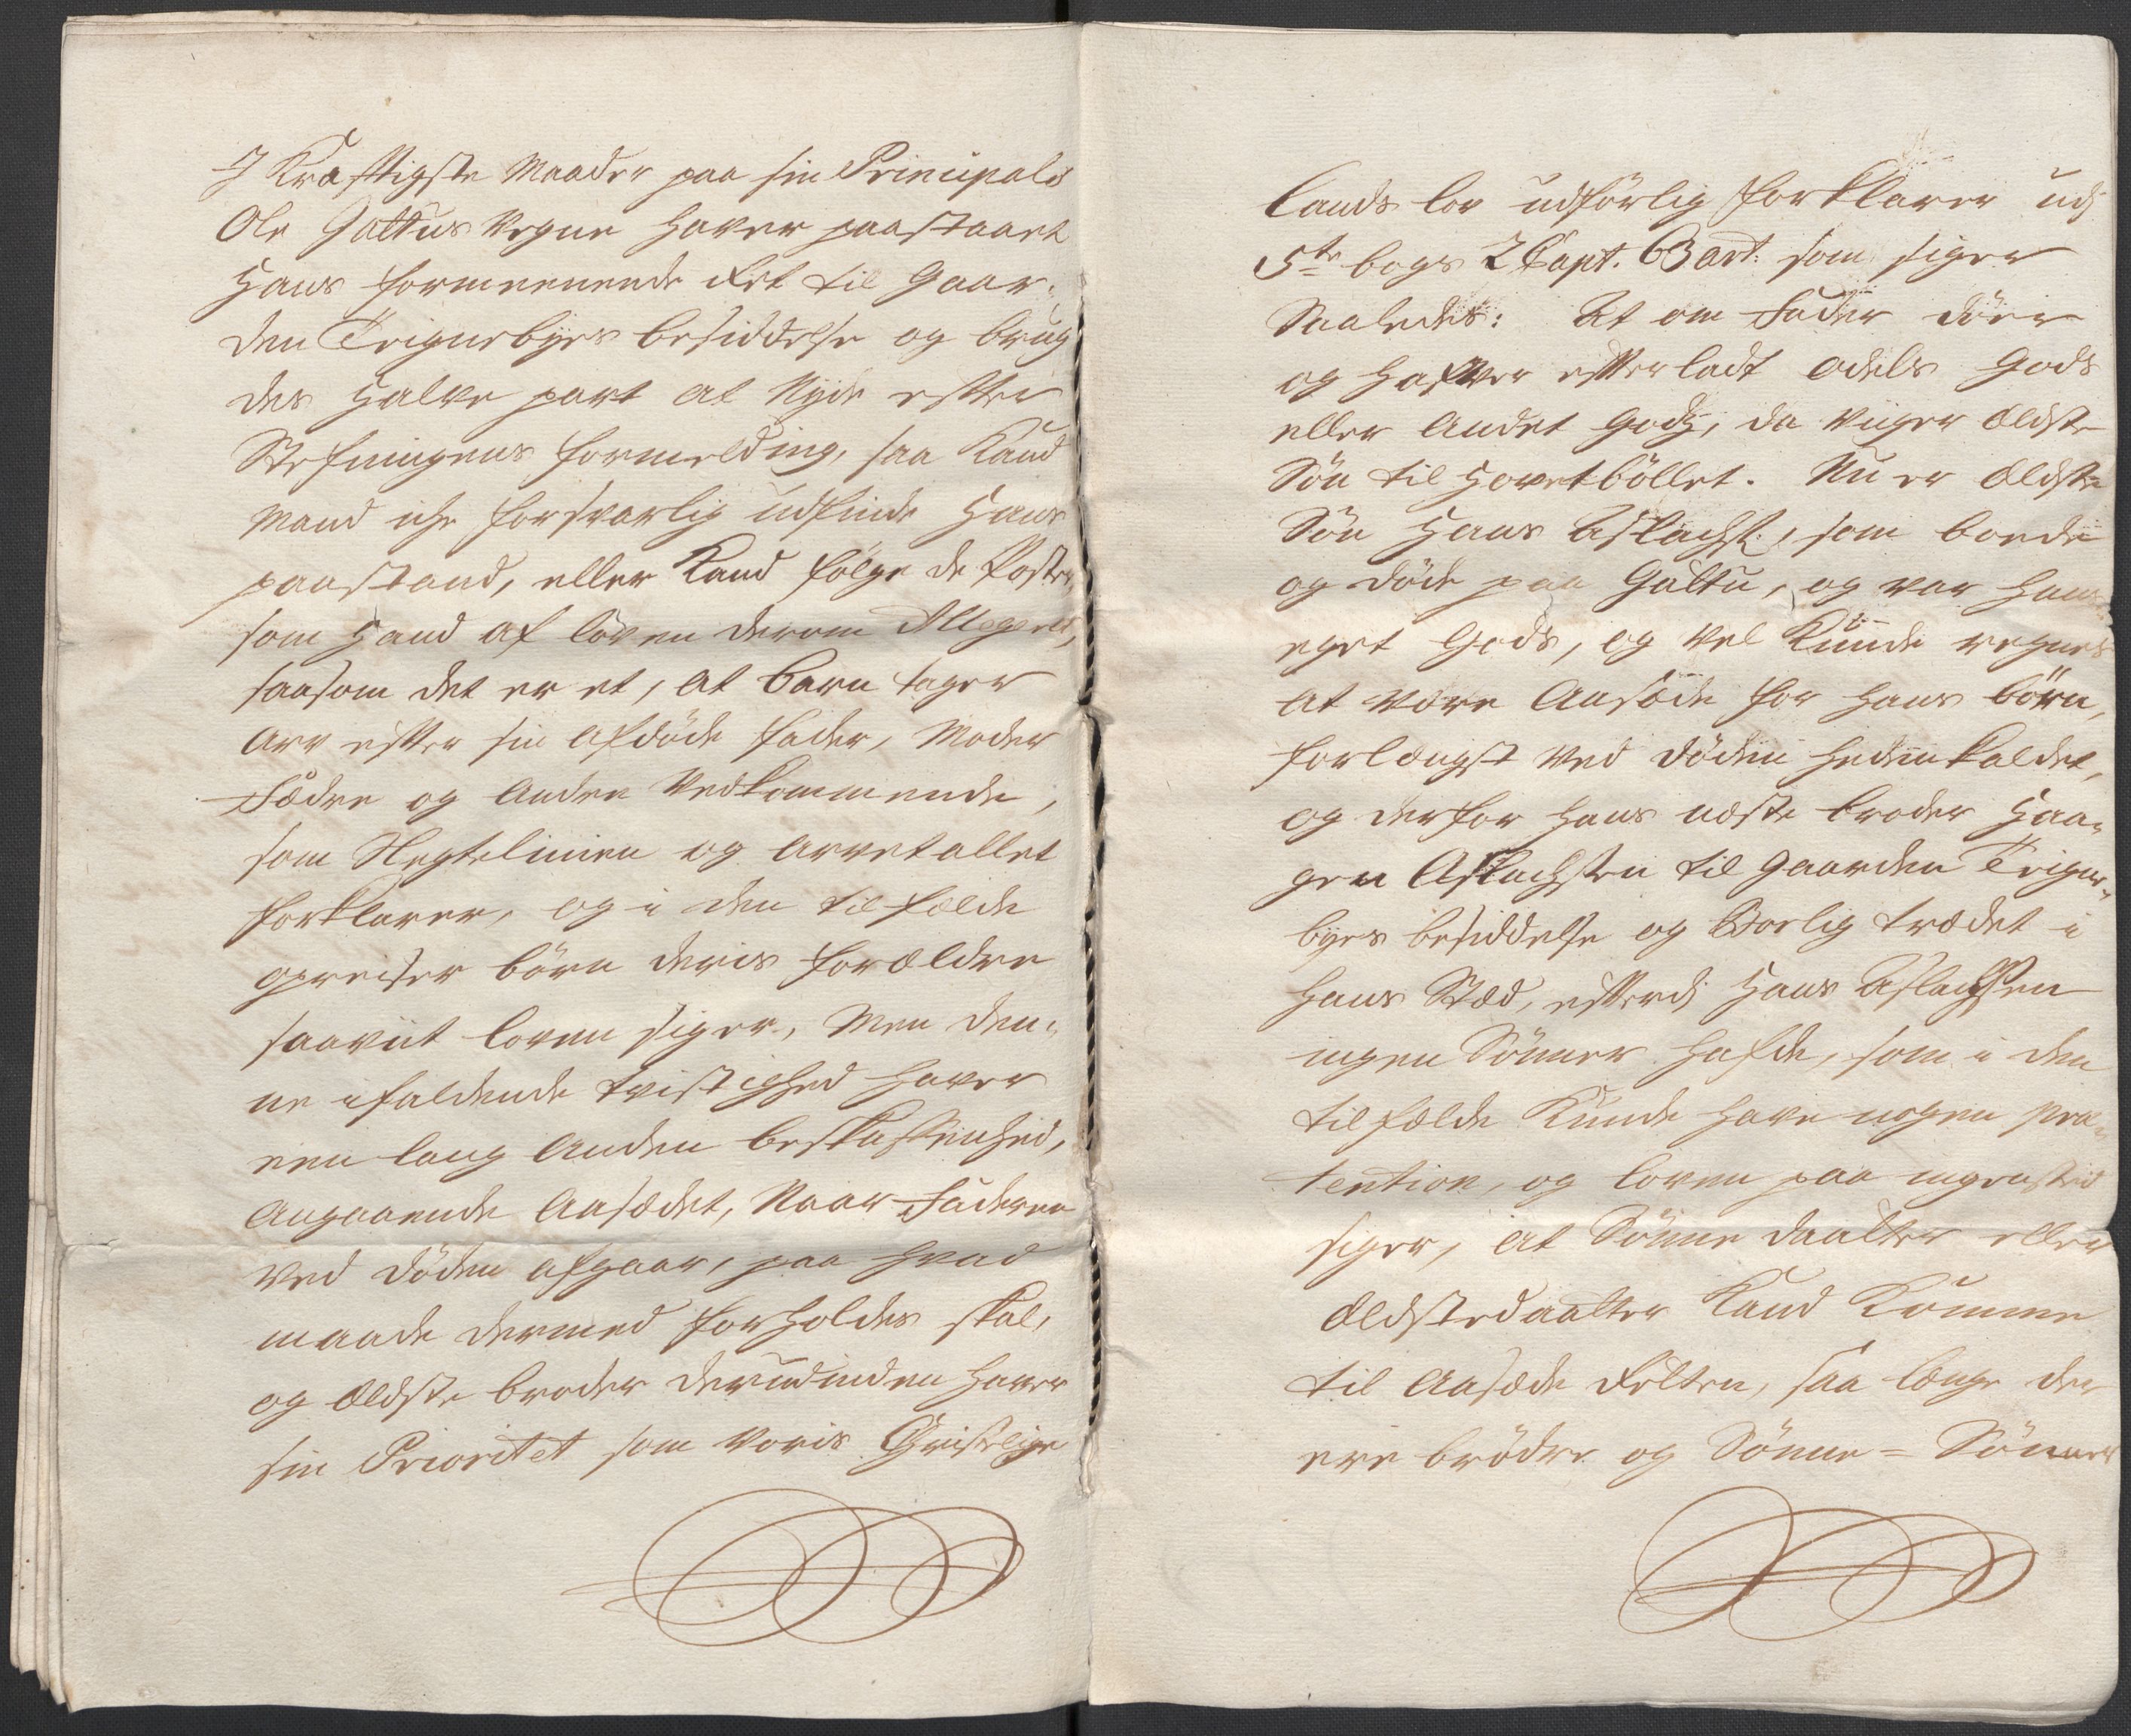 I Kraftigste Maader paa sin Principals
Ole Galtus Vegne haver paastaaet
Hans formeenende Ret til Gaar-
den Teignebyes besiddelse og brug
des halve part at Nyde efter
Stefningens formelding, saa Kand
Mand iche forsvarlig udfinde Hans
paastand, eller Kand følge de Poster
som Hand af loven derom Allegerer,
saasom det er et, at barn tager
Arv efter sin afdøde fader, Moder
Fædre og Andre Vedkommende,
som Slegtelinien og Arvetallet
forklarer, og i den tilfælde
opreiser børn deris forældre
saaviit loven siger, Men den-
ne ifaldende tvistighed haver
een lang Anden beskaffenhed,
Angaaende Aasædet, Naar Faderen
ved døden afgaar, paa hvad
maade dermed forholdes skal,
og Ældste broder derudinden haver
sin Prioritet som voris Christelige
lands lov udførlig forklarer udj
5te bogs 2 Capt. 63 art: som siger
Saaledes: At om Fader døer
og hafver efterladt odels Gods
eller Andet Gods, da viiger Ældste
Søn til Hovetbøllet. Nu er Ældste
Søn Hans Aslachs: som boede
og døde paa Galtu, og var hans
eget Gods, og vel Kunde regnes
at være Aasæde for hans børn,
forlengst ved døden hedenkaldet,
og derfor hans næste broder Haa-
gen Aslachsen til Gaarden Teigne-
byes besiddelse og Boelig trædet i
hans Stæd, efterdj Hans Aslachsen
ingen Sønner hafde, som i den
tilfælde Kunde have nogen præ-
tention, og loven paa ingen sted
siger, at Sønne daatter eller
Ældstedaatter Kand Komme
til Aasæde Retten, saa længe der
ere brødre og Sønne = Sønner